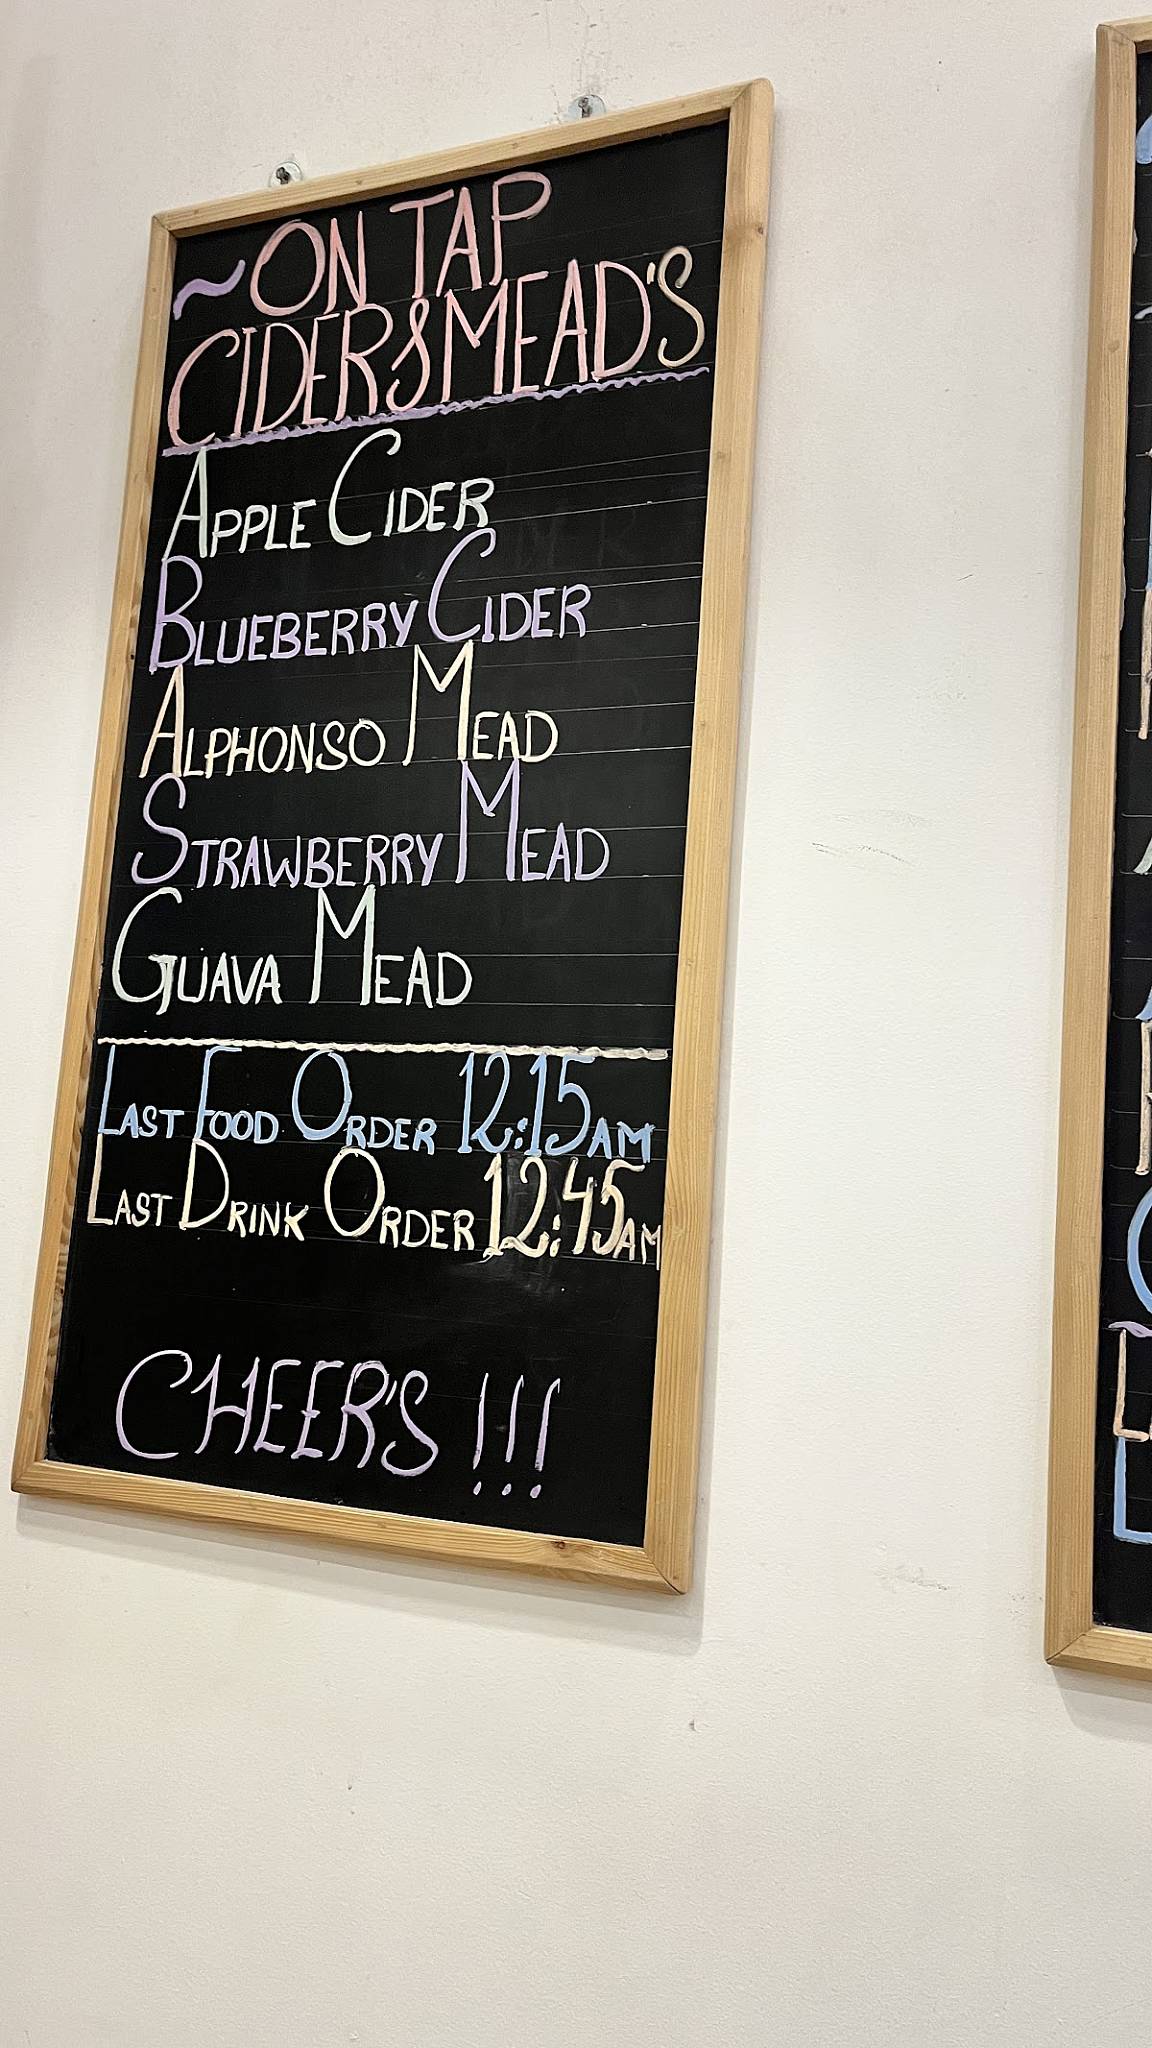 ~ON TAP
CIDER&MEAD'S
APPLE CIDER
BLUEBERRY CIDER
ALPHONSO MEAD
STRAWBERRY MEAD
GUAVA MEAD
LAST FOOD ORDER 12:15AM
LAST DRINK ORDER 12:45AM
CHEER'S !!!